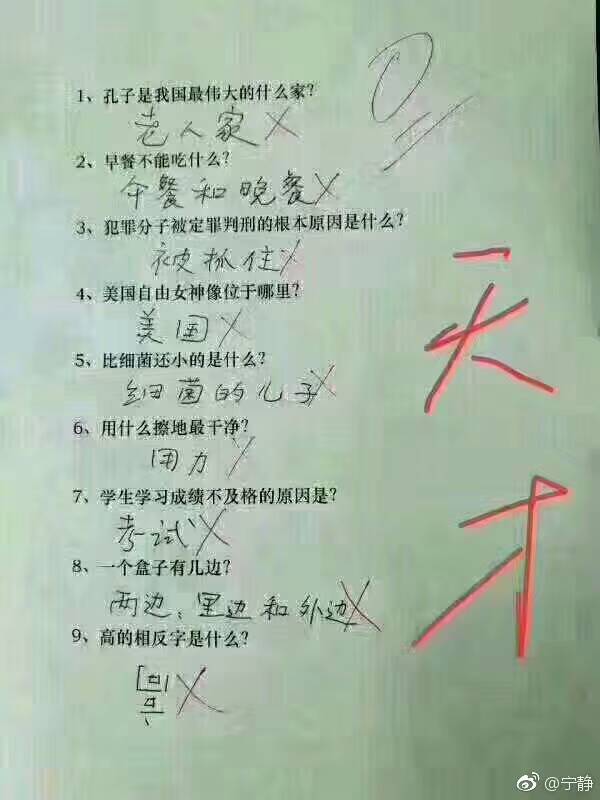 0
1、孔子是我国最伟大的什么家？
老人家
2、早餐不能吃什么？
午餐和晚餐
3、犯罪分子被定罪判刑的根本原因是什么？
被抓住
4、美国自由女神像位于哪里？
美国
5、比细菌还小的是什么？
细菌的儿子
6、用什么擦地最干净？
用力
7、学生学习成绩不及格的原因是？
考试
8、一个盒子有几边？
两边、里边和外边
9、高的相反字是什么？
天
才
@宁静